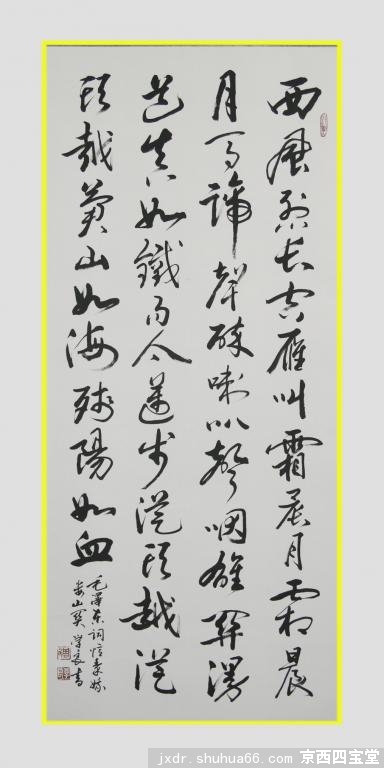 西風烈長空雁叫霜晨月霜晨
月馬蹄聲碎喇叭聲咽雄關漫
道真如鐵而今邁步從頭越從
頭越蒼山如海殘陽如血
毛澤東詞憶秦娥
婁山關 書
jxdr.shuhua66.com 京西四宝堂